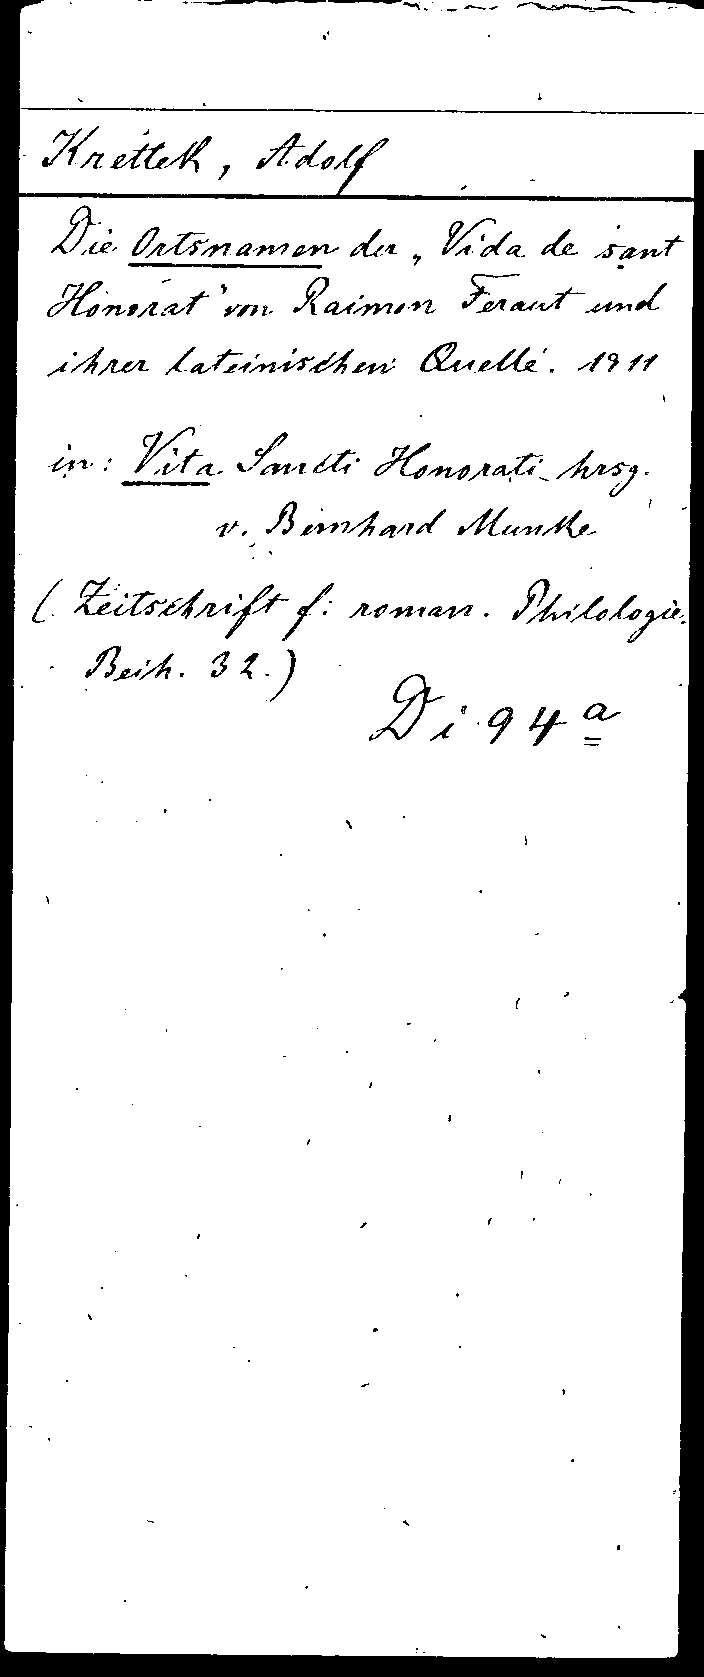 Krettek, Adolf
Die Ortsnamen der „Vida de sant
Honorat" von Raimon Feraut und
ihrer lateinischen Quelle. 1911
in: Vita Sancti Honorati hrsg.
v. Bernhard Munke
(Zeitschrift f. roman. Philologie.
Beih. 32.)
Di 94 a